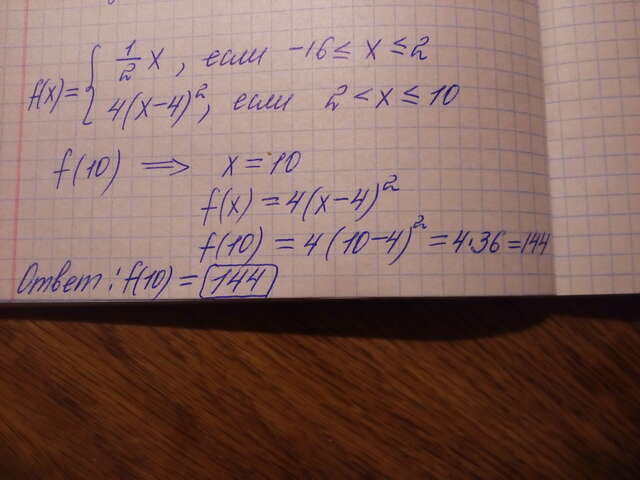 f(x) = { 1/2 x, если -16 ≤ x ≤ 2
4(x-4)², если 2 < x ≤ 10
f(10) ⟹ x = 10
f(x) = 4(x-4)²
f(10) = 4(10-4)² = 4·36 = 144
Ответ: f(10) = 144